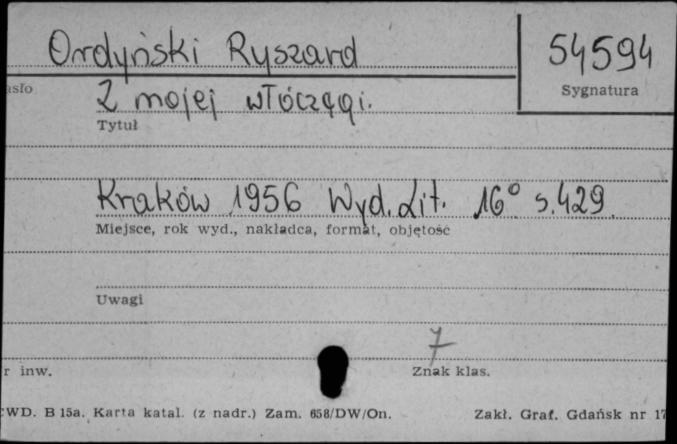 Ordyński Ryszard
54594
Sygnatura
asło
Z mojej włóczęgi.
Tytuł
Kraków 1956 Wyd. Lit. 16° s. 429
Miejsce, rok wyd., nakładca, format, objętość
Uwagi
7
r inw.
Znak klas.
CWD. B 15a. Karta katal. (z nadr.) Zam. 658/DW/On.
Zakł. Graf. Gdańsk nr 17